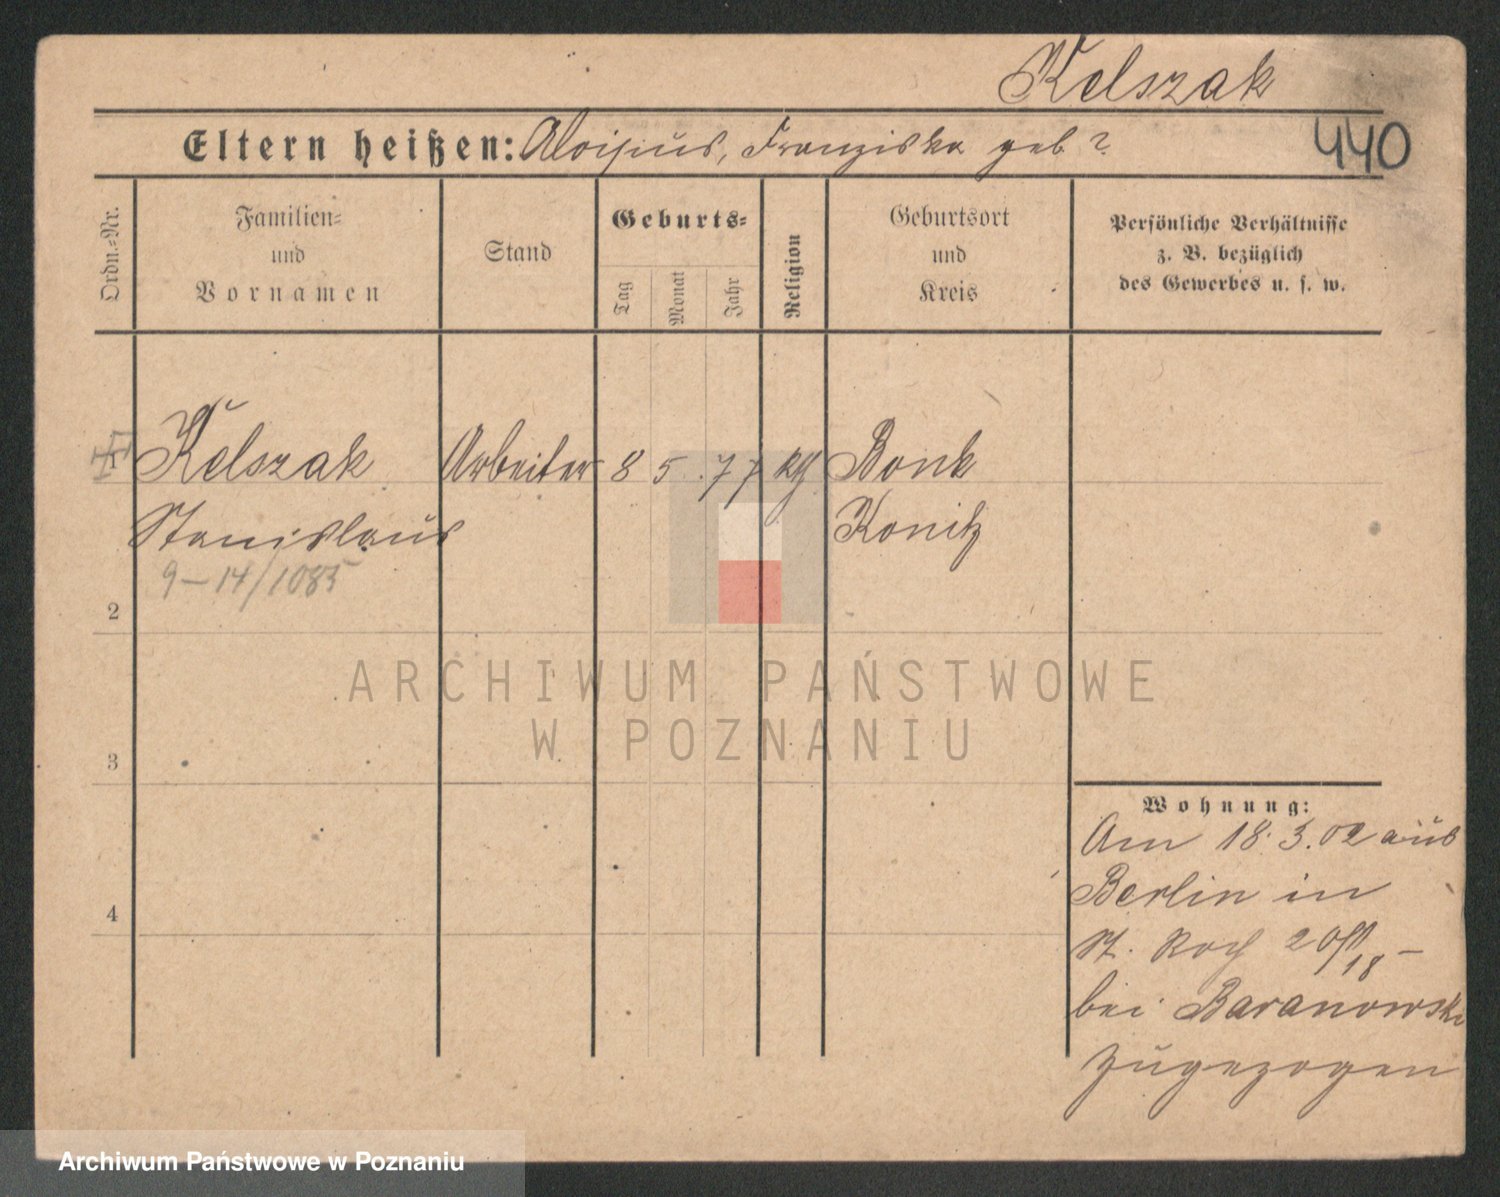 Kelszak
Eltern heißen: Aloisius, Franziska geb ?
440
Ordn.=Nr.
Familien=
und
Vornamen
Stand
Geburts=
Tag
Monat
Jahr
Religion
Geburtsort
und
Kreis
Persönliche Verhältnisse
z. B. bezüglich
des Gewerbes u. s. w.
1 Kelszak Arbeiter 8 5. 77 Bonk
Stanislaus Konitz
9-14/1085
2
3
4
Wohnung:
Am 18.3.02 aus
Berlin in
St. Roch
bei Baranowski
zugezogen
ARCHIWUM PAŃSTWOWE
W POZNANIU
Archiwum Państwowe w Poznaniu